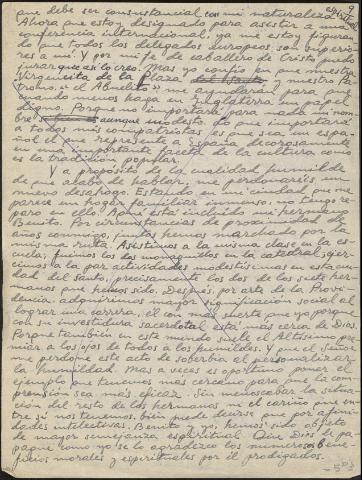 que debe ser consustancial con mi naturaleza
Ahora que estoy designado para asistir a una
conferencia internacional, ya me estoy figuran
do que todos los delegados europeos son superio
res a mí. Y por mi fe de caballero de Cristo puedo
jurar que así lo creo. Mas yo confío en que nuestra
Virgencita de la Plaza y nuestro Pa
trono, "el Abuelito" me ayudarán para que
cuando menos haga en Inglaterra un papel
digno. Porque no importará para nada mi nom
bre aunque modesto, lo que importará
a todos mis compatriotas es que sea un espa
ñol el que represente a España decorosamente
en una importante faceta de la cultura como
es la tradición popular.
Y a propósito de la cualidad humilde
de que acabo de hablar, me perdonaréis un
íntimo desahogo. Estando en mi ciudad que me
parece un hogar familiar inmenso, no tengo re
paro en ello. Aquí está incluido mi hermano
Benito. Por circunstancias de proximidad de
años conmigo, juntos hemos marchado por la
misma ruta. Asistimos a la misma clase en la es
cuela, fuimos los dos monaguillos en la catedral, ejer
cimos a la par actividades modestísimas en esta ciu
dad del Santo, precisamente los dos de los siete her
manos que hemos sido. Después, por arte de la Provi
dencia adquirimos mayor significación social al
lograr una carrera, él con más suerte que yo porque
con su investidura sacerdotal está más cerca de Dios.
Porque también en este mundo suele el Altísimo pre
miar a los ojos de todos a los humildes. Y que el Señor
me perdone este acto de soberbia al personalizar
la humildad. Mas a veces es oportuno poner el
ejemplo que tenemos más cercano para que la com
prensión sea más eficaz. Sin menoscabar la situa
ción del resto de los hermanos ni el cariño que en
tre sí nos tenemos, bien puede decirse que por afini
dades intelectivas, Benito y yo, hemos sido objeto
de mayor semejanza espiritual. Que Dios le pa
gue como yo se lo agradezco los numerosos bene
ficios morales y espirituales por él prodigados.